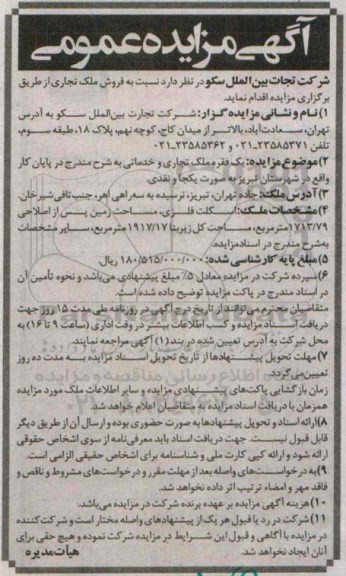 آگهی مزایده عمومی
شرکت تجات بین الملل سکو در نظر دارد نسبت به فروش ملک تجاری از طریق
برگزاری مزایده اقدام نماید.
۱) نام و نشانی مزایده گزار: شرکت تجارت بین‌الملل سکو به آدرس
تهران، سعادت‌آباد، بالاتر از میدان کاج، کوچه نهم، پلاک ۱۸، طبقه سوم،
تلفن ۲۳۵۸۵۳۷۱-۰۲۱ و ۲۳۵۸۵۳۶۲-۰۲۱
۲) موضوع مزایده: یک فقره ملک تجاری و خدماتی به شرح مندرج در پایان کار
واقع در شهرستان تبریز به صورت یکجا و نقدی.
۳) آدرس ملک: جاده تهران، تبریز، نرسیده به سه‌راهی اهر، جنب تافی شیرخان.
۴) مشخصات ملک: اسکلت فلزی، مساحت زمین پس از اصلاحی
۱۷۱۳/۷۹ مترمربع، مساحت کل زیربنا ۱۹۱۷/۱۷ مترمربع، سایر مشخصات
به شرح مندرج در اسناد مزایده.
۵) مبلغ پایه کارشناسی شده: ۱۸۰/۵۲۵/۰۰۰/۰۰۰ ریال.
۶) سپرده شرکت در مزایده معادل ۵٪ مبلغ پیشنهادی می‌باشد و نحوه تأمین آن
در اسناد مندرج در پاکت مزایده توضیح داده شده است.
متقاضیان محترم می‌توانند از تاریخ درج آگهی در روزنامه طی مدت ۱۵ روز جهت
دریافت اسناد مزایده و کسب اطلاعات بیشتر در وقت اداری (ساعت ۹ تا ۱۶) به
محل شرکت به آدرس تعیین شده در بند (۱) آگهی مراجعه نمایند.
۷) مهلت تحویل پیشنهادها از تاریخ تحویل اسناد مزایده به مدت ده روز
تعیین می‌گردد.
زمان بازگشایی پاکت‌های پیشنهادی مزایده و سایر اطلاعات ملک مورد مزایده
همزمان با دریافت اسناد مزایده به متقاضیان اعلام خواهد شد.
۸) ارائه اسناد و تحویل پیشنهادها به صورت حضوری بوده و ارسال آن از طریق دیگر
قابل قبول نیست. جهت دریافت اسناد باید معرفی‌نامه از سوی اشخاص حقوقی
ارائه شود و ارائه کپی کارت ملی و شناسنامه برای اشخاص حقیقی الزامی است.
۹) به درخواست‌های واصله بعد از مهلت مقرر و درخواست‌های مشروط و ناقص و
فاقد مهر و امضاء ترتیب اثر داده نخواهد شد.
۱۰) هزینه آگهی مزایده بر عهده برنده شرکت در مزایده می‌باشد.
۱۱) شرکت در رد یا قبول هر یک از پیشنهادهای واصله مختار است و شرکت‌کننده
در مزایده با آگاهی و قبول این شرایط در مزایده شرکت نموده و هیچ حقی برای
آنان ایجاد نخواهد شد.
هیأت مدیره